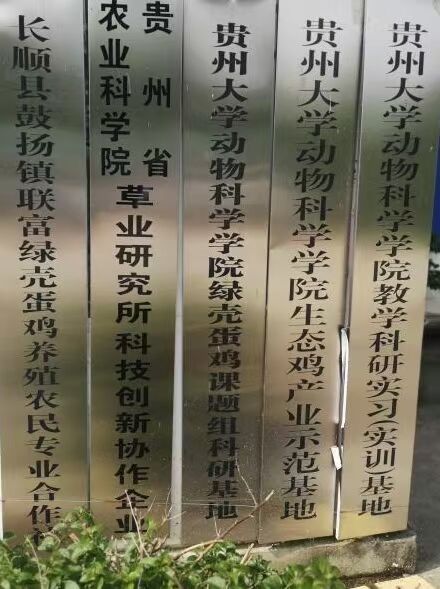 长顺县鼓扬镇联富绿壳蛋鸡养殖农民专业合作社
贵州省
农业科学院
草业研究所科技创新协作企业
贵州大学动物科学学院绿壳蛋鸡课题组科研基地
贵州大学动物科学学院生态鸡产业示范基地
贵州大学动物科学学院教学科研实习(实训)基地